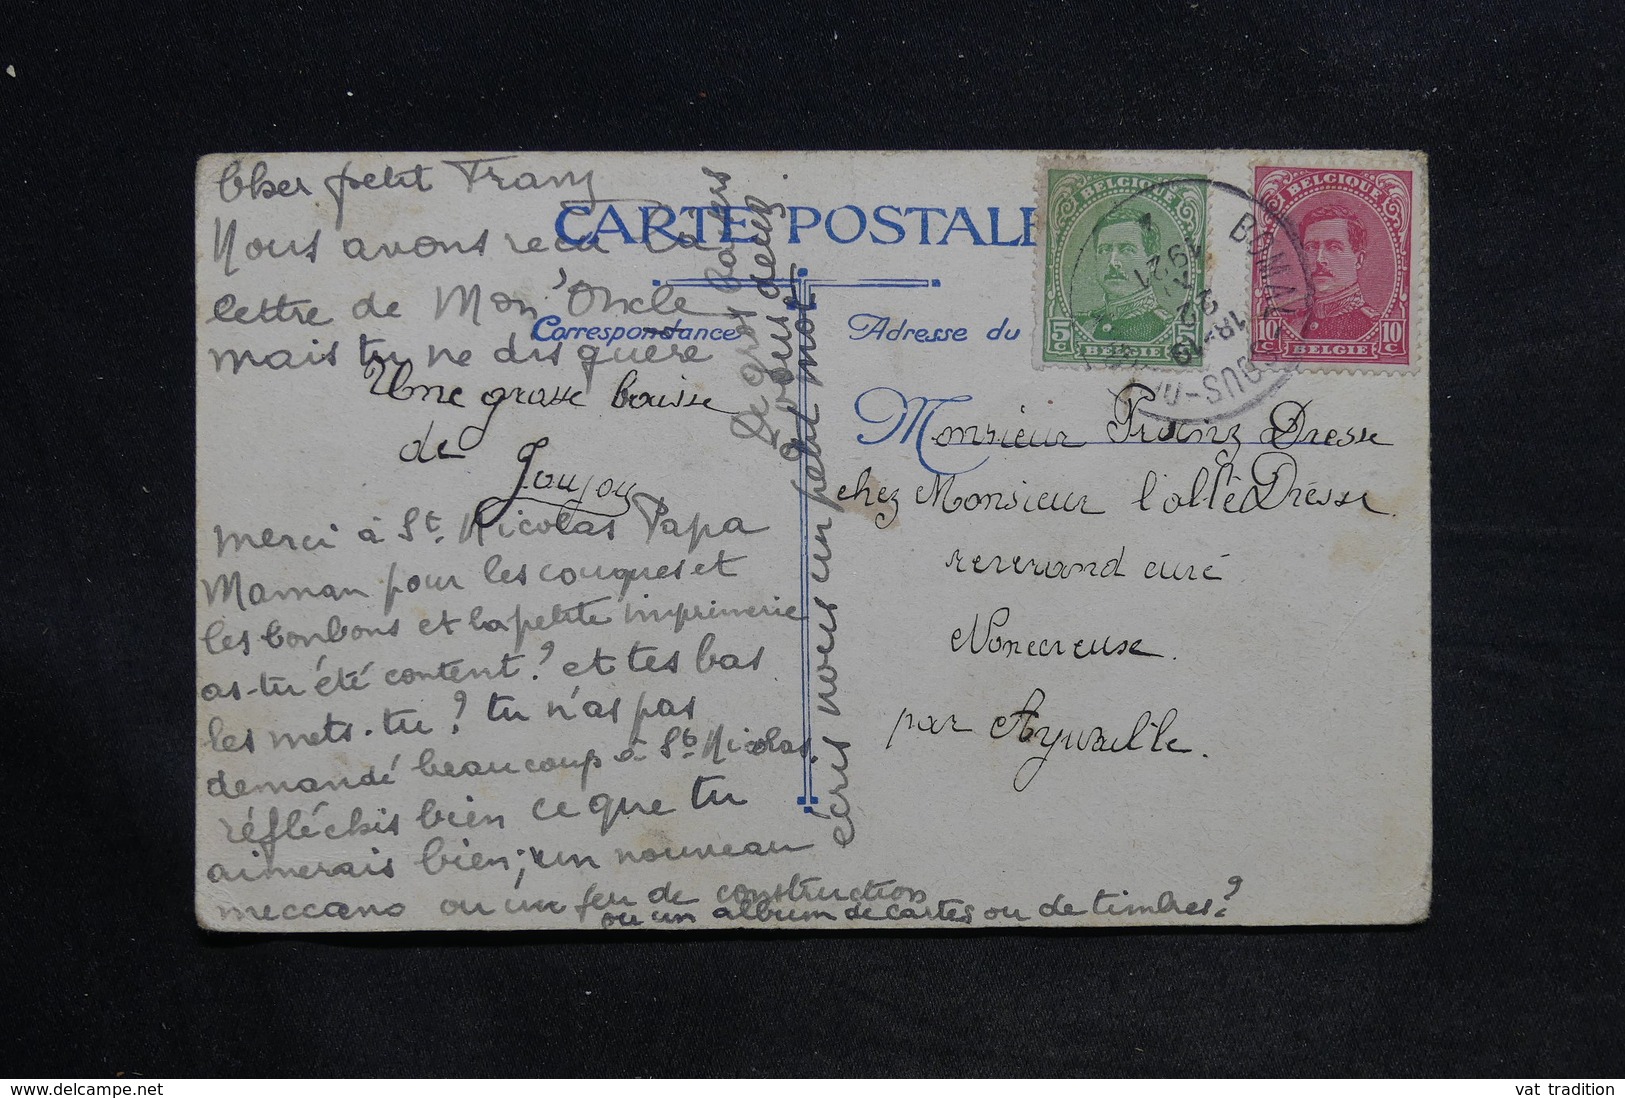 Cher petit Franz
Nous avons recu la
lettre de Mon Oncle
mais tu ne dis guère
Une grosse baisse
de
Joujou
merci à St. Nicolas Papa
Maman pour les couques et
les bonbons et la petite imprimerie
as-tu été content? et tes bas
les mets-tu? tu n'as pas
demandé beaucoup à St. Nicolas,
réfléchis bien ce que tu
aimerais bien; un nouveau
meccano ou un jeu de construction
ou un album de cartes ou de timbres?
De gros baisers
vous deux
écris nous un petit mot
CARTE POSTALE
Correspondance
Adresse du
BELGIQUE
5c 5c
BELGIE
BELGIQUE
10c 10c
BELGIE
BOMAL
SOUS-
18-19
22
1921
Monsieur Franz Dresse
chez Monsieur l'abbé Dresse
reverand curé
Nonceveux.
par Aywaille.
www.delcampe.net
vat tradition